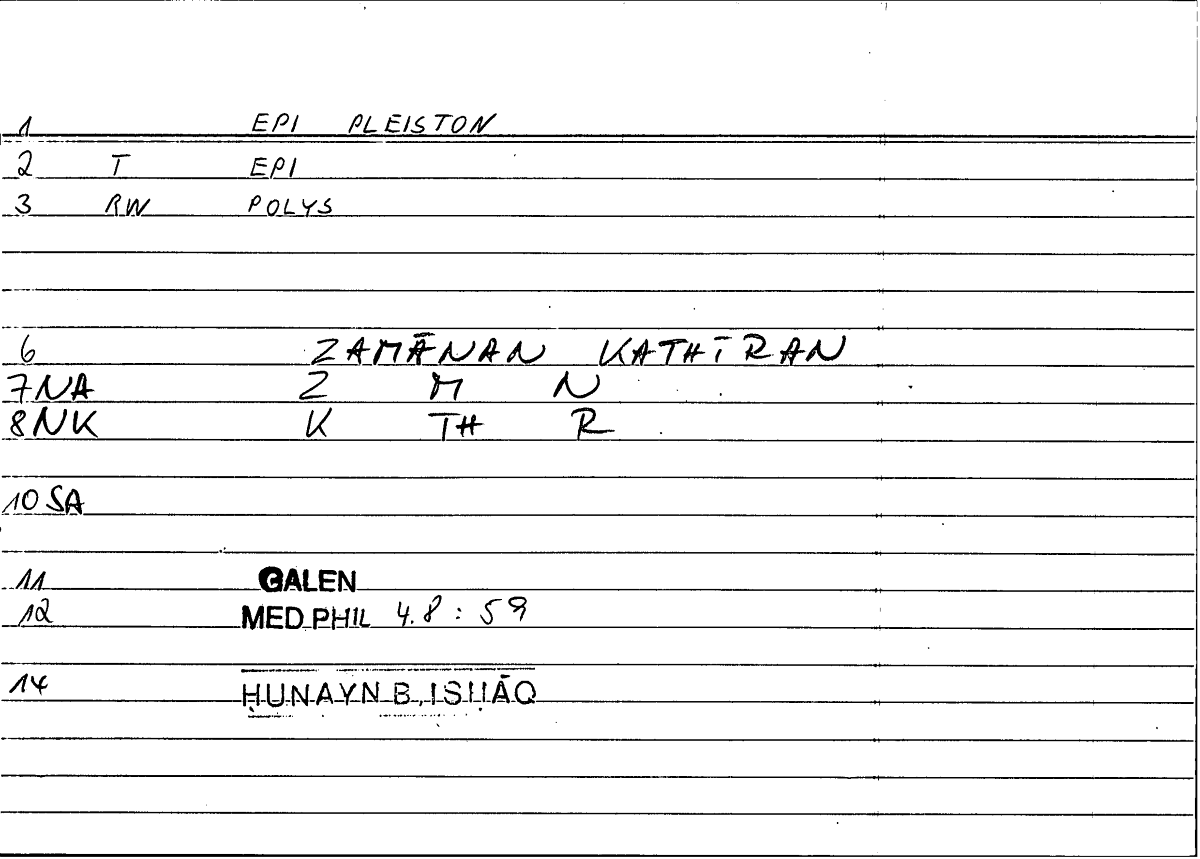 1 EPI PLEISTON
2 T EPI
3 RW POLYS
6 ZAMĀNAN KATHĪRAN
7 NA Z M N
8 NK K TH R
10 SA
11 GALEN
12 MED PHIL 4.8 : 59
14 ḤUNAYN B. ISḤĀQ